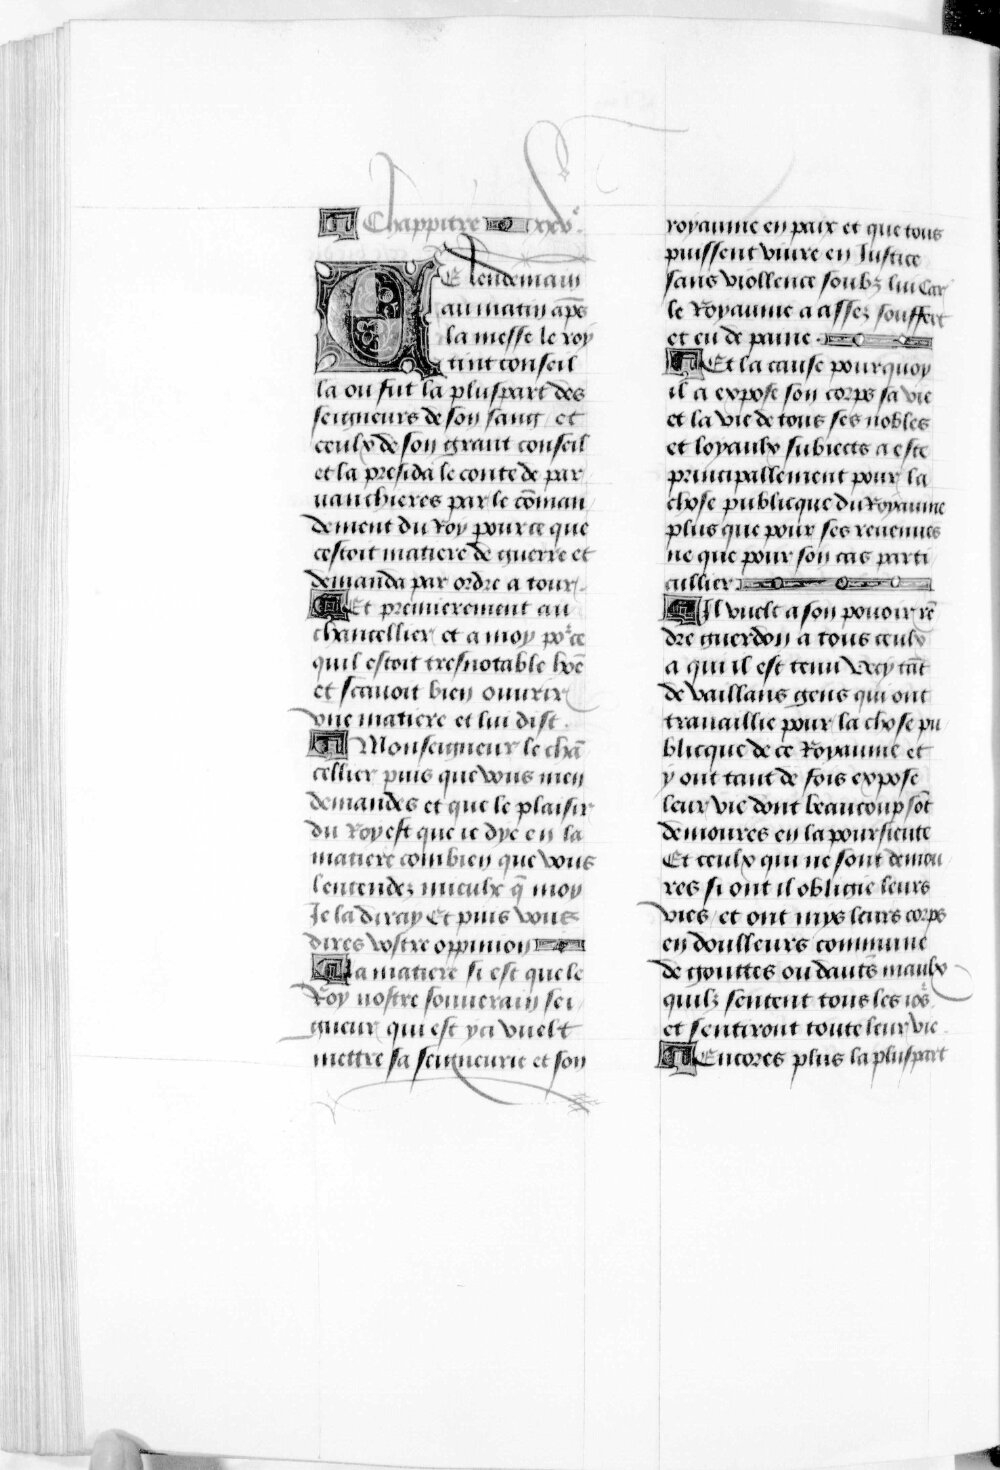 Chappitre xxv.e
Le lendemain
au matin ap̄s
la messe le roy
tint conseil
la ou fut la pluspart des
seigneurs de son sang / et
ceulx de son grant conseil
et la presida le conte de par
uanchieres par le cōman
dement du Roy pource que
cestoit matiere de guerre et
demanda par ordre a tour.
Et premierement au
chancellier et a moy po.r ce
quil estoit tresnotable hōe
et scauoit bien ouurir
vne matiere et lui dist.
Monseigneur le chā
cellier puis que vous men
demandes et que le plaisir
du Roy est que ie dye en la
matiere combien que vous
lentendez mieulx q̄ moy
Je la diray Et puis vous
dires vostre oppinion
La matiere si est que le
Roy nostre souuerain sei
gneur qui est yci vuelt
mettre sa seigneurie et son
royaume en paix et que tous
puissent viure en Justice
sans viollence soubz lui Car
le Royaume a assez souffert
et eu de paine.
Et la cause pourquoy
il a expose son corps sa vie
et la vie de tous ses nobles
et loyaulx subiects a este
principallement pour la
chose publicque du Royaume
plus que pour ses reuenues
ne que pour son cas parti
cullier
Il vuelt a son pouoir rē
dre guerdon a tous ceulx
a qui il est tenu Vecy tāt
de vaillans gens qui ont
trauaillie pour la chose pu
blicque de ce Royaume et
y ont tant de fois expose
leur vie dont beaucoup sōt
demoures en la poursieute
Et ceulx qui ne sont demou
res si ont il obligie leurs
vies / et ont mys leurs corps
en doulleurs commune
de gouttes ou dautēs maulx
quilz sentent tous les io.rs
et sentiront toute leur vie.
Encores plus la pluspart